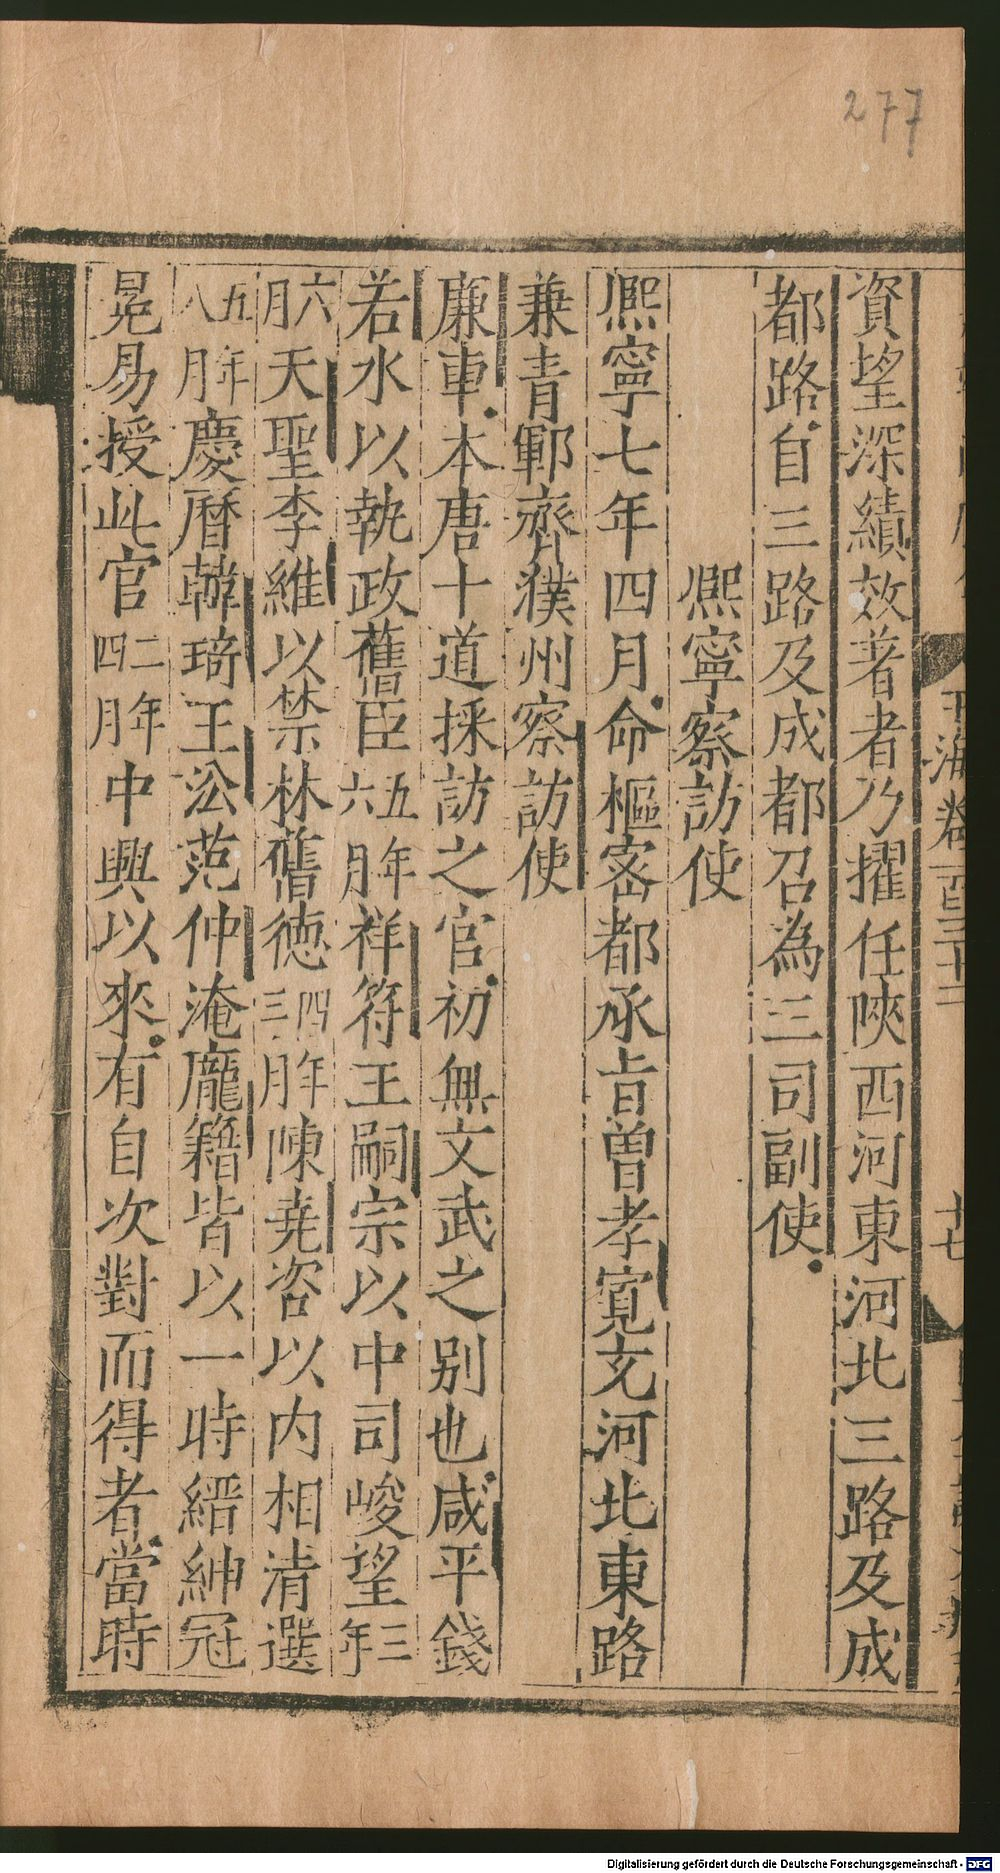 277
玉海卷一百三十二
十七
資望深績效著者乃擢任陝西河東河北三路及成
都路自三路及成都召為三司副使
熙寧察訪使
熙寧七年四月命樞密都承旨曽孝寛充河北東路
兼青鄆齊濮州察訪使
廉車本唐十道採訪之官初無文武之别也咸平錢
若水以執政舊臣五年六月祥符王嗣宗以中司峻望三年
六月天聖李維以禁林舊徳四年三月陳堯咨以内相清選
五年八月慶曆韓琦王㳂范仲淹龐籍皆以一時縉紳冠
冕易授此官二年四月中興以來有自次對而得者當時
Digitalisierung gefördert durch die Deutsche Forschungsgemeinschaft - DFG